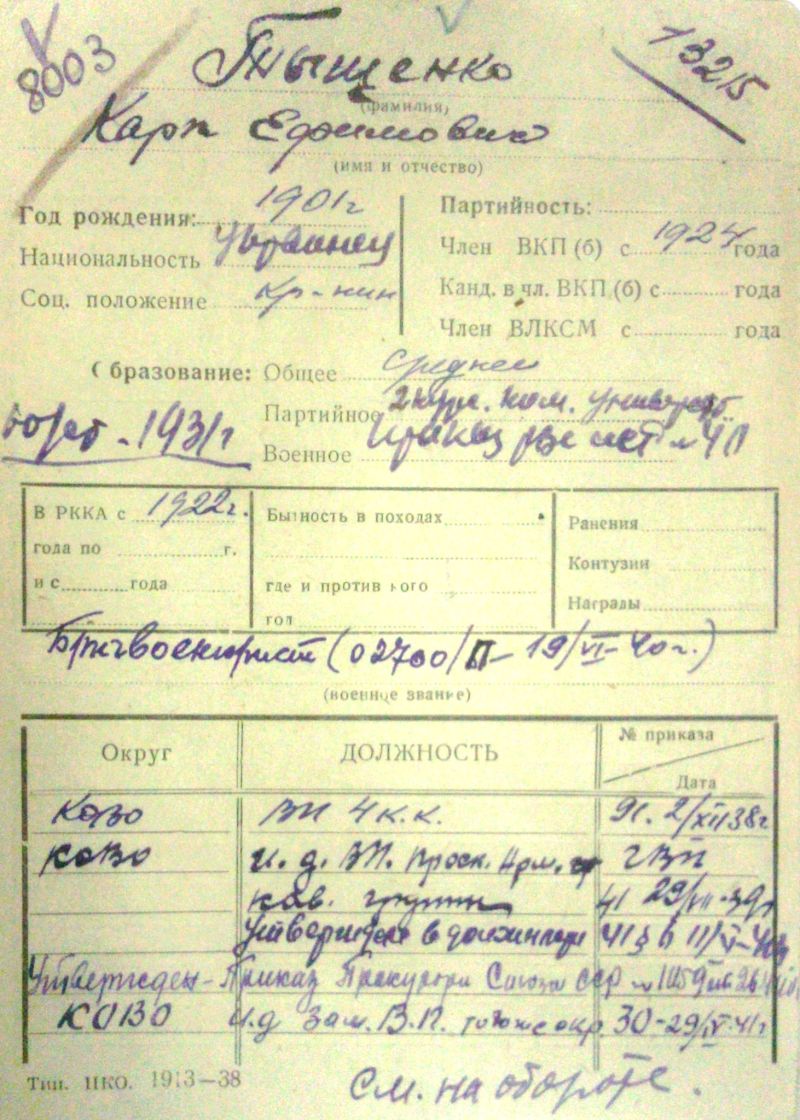 8003
13215
Тыщенко
(фамилия)
Карп Ефимович
(имя и отчество)
Год рождения: 1901 г
Национальность Украинец
Соц. положение кр-нин
Партийность:
Член ВКП (б) с 1924 года
Канд. в чл. ВКП (б) с года
Член ВЛКСМ с года
Образование: Общее среднее
Партийное 2 курс. ком. университ
1931 г
Военное
В РККА с 1922 г.
года по г.
и с года
Бытность в походах
где и против кого
год
Ранения
Контузии
Награды
Бригвоенюрист (02700/П - 19/VI - 40 г.)
(военное звание)
Округ
ДОЛЖНОСТЬ
№ приказа
Дата
КОВО ВП 4 к.к. 91. 2/XII 38 г
КОВО и. д. ВП. Проск. Арм. ГВП
кав. группы 41 29/ 39 г
Утвержден в должности 41 § 6 11/V-40
Утвержден - Приказ Прокурора Союза ССР № 1059
КОВО и.д Зам. В.П. того же окр. 30 - 29/IV-41 г
Тип. НКО. 1913—38
См. на обороте.